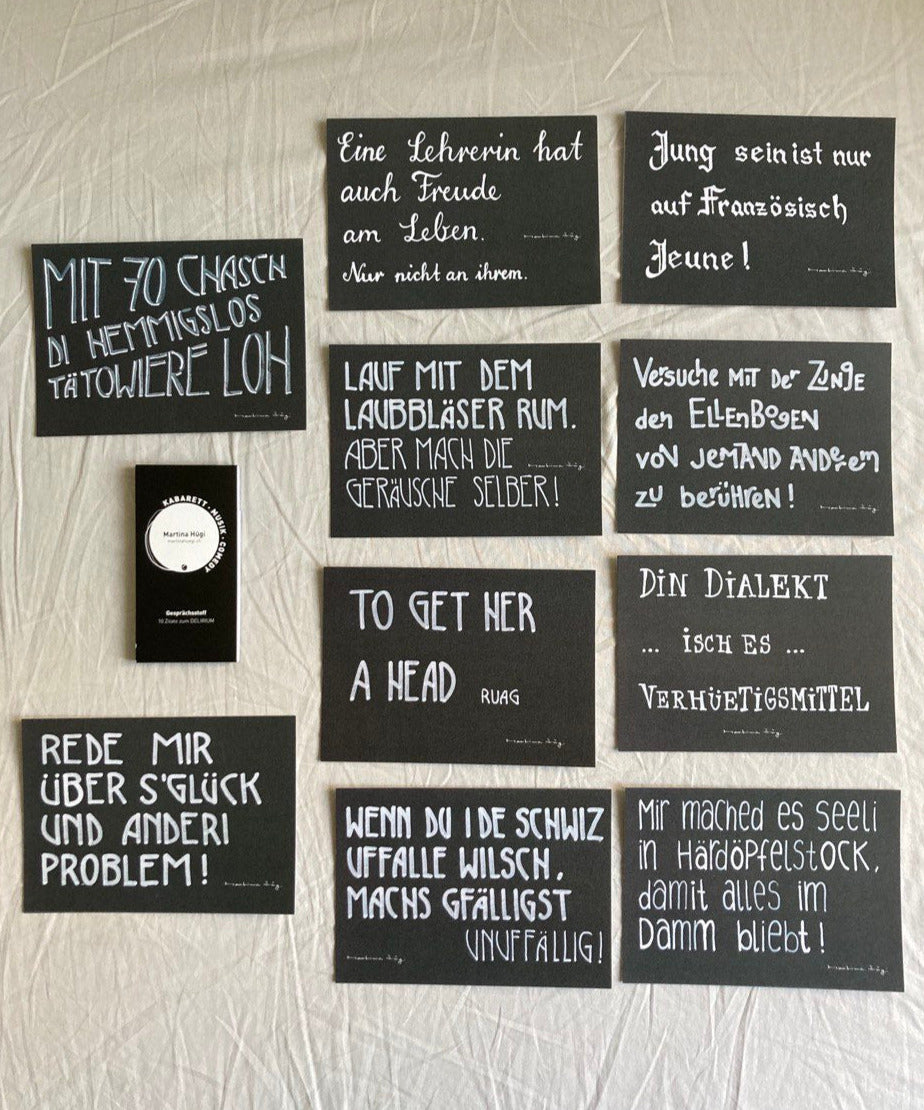 MIT 70 CHASCH
DI HEMMIGSLOS
TÄTOWIERE LOH
Martina Hügi
KABARETT · MUSIK · COMEDY
Martina Hügi
martinahuegi.ch
Gesprächsstoff
10 Zitate zum DELIRIUM
REDE MIR
ÜBER S'GLÜCK
UND ANDERI
PROBLEM!
Martina Hügi
Eine Lehrerin hat
auch Freude
am Leben.
Martina Hügi
Nur nicht an ihrem.
LAUF MIT DEM
LAUBBLÄSER RUM.
ABER MACH DIE
Martina Hügi
GERÄUSCHE SELBER!
TO GET HER
A HEAD RUAG
Martina Hügi
WENN DU I DE SCHWIZ
UFFALLE WILSCH,
MACHS GFÄLLIGST
UNUFFÄLLIG!
Martina Hügi
Jung sein ist nur
auf Französisch
Jeune!
Martina Hügi
Versuche MIT Der ZUNGE
den ELLENBOGEN
voN JEMAND ANDerem
zu berühren!
Martina Hügi
DIN DIALEKT
... ISCH ES ...
VERHÜETIGSMITTEL
Martina Hügi
Mir mached es Seeli
in HärdöpfelstOCK,
damit alles im
Damm bliebt!
Martina Hügi